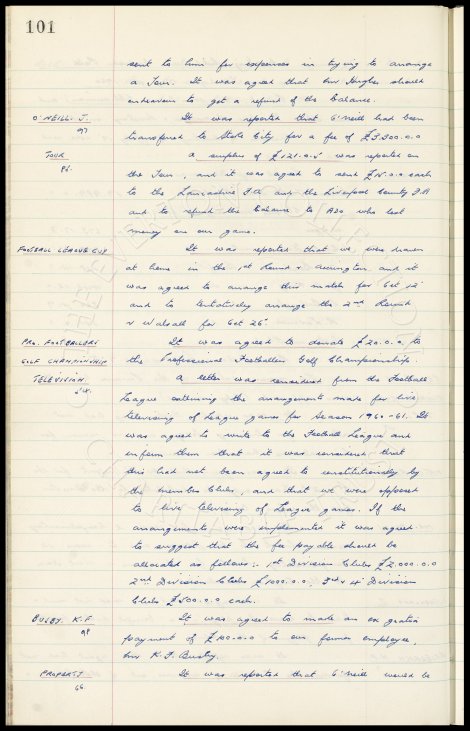 101
sent to him for expenses in trying to arrange
a Tour. It was agreed that Mr Hughes should
endeavour to get a refund of the balance.
O'NEILL. J.
97
It was reported that O'Neill had been
transferred to Stoke City for a fee of £3,500.0.0
TOUR
A surplus of £121.0.5 was reported on
the Tour, and it was agreed to send £15.0.0 each
to the Lancashire F.A and the Liverpool County F.A
and to refund the balance to who lost
money on our game.
FOOTBALL LEAGUE CUP
It was reported that we were drawn
at home in the 1st Round v Accrington and it
was agreed to arrange this match for Oct 12
and to tentatively arrange the 2nd Round
v Walsall for Oct 26.
PRO. FOOTBALLERS
GOLF CHAMPIONSHIP
It was agreed to donate £20.0.0 to
the Professional Footballers Golf Championship.
TELEVISION.
A letter was considered from the Football
League outlining the arrangements made for live
televising of League games for Season 1960-61. It
was agreed to write to the Football League and
inform them that it was considered that
this had not been agreed to constitutionally by
the member Clubs, and that we were opposed
to live televising of League games. If the
arrangements were implemented it was agreed
to suggest that the fee payable should be
allocated as follows:- 1st Division Clubs £2,000.0.0
2nd Division Clubs £1000.0.0, 3rd & 4 Division
Clubs £500.0.0 each.
BUSBY. K.F
98
It was agreed to make an ex gratia
payment of £100.0.0 to our former employee,
Mr K.F. Busby.
PROPERTY
66
It was reported that O'Neill would be